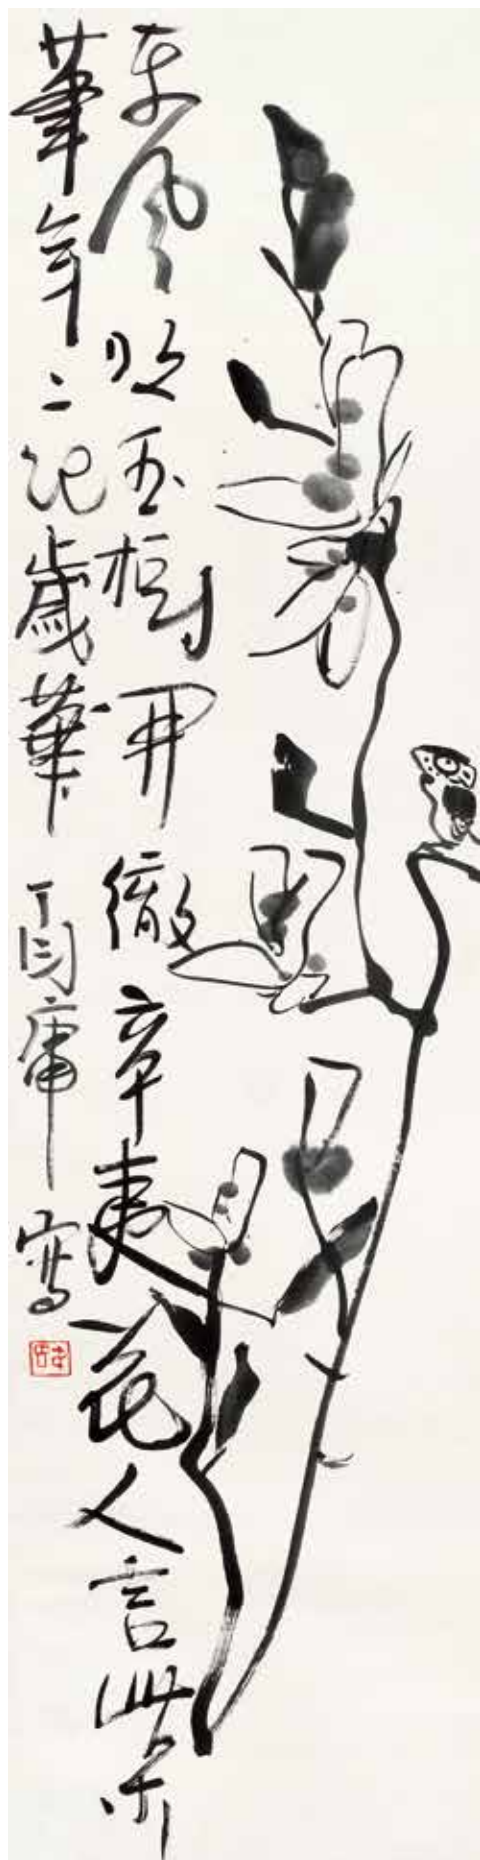 東風吹玉樹開徹辛夷花人言此木
筆年々記歲華 丁衍庸寫